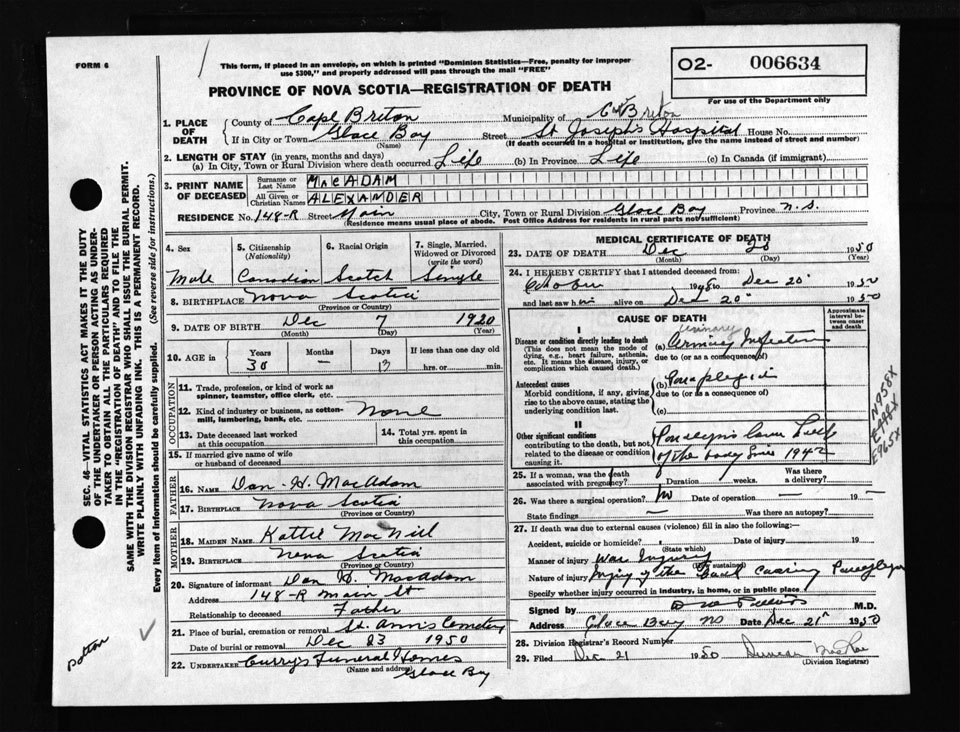 FORM 6
This form, if placed in an envelope, on which is printed "Dominion Statistics—Free, penalty for improper
use $300," and properly addressed will pass through the mail "FREE"
O2- 006634
For use of the Department only
PROVINCE OF NOVA SCOTIA—REGISTRATION OF DEATH
1. PLACE OF DEATH
County of Cape Briton Municipality of C. Briton
If in City or Town Glace Bay Street St Josephs Hospital House No.
(Name) (If death occurred in a hospital or institution, give the name instead of street and number)
2. LENGTH OF STAY (in years, months and days)
(a) In City, Town or Rural Division where death occurred Life (b) In Province Life (c) In Canada (if immigrant)
3. PRINT NAME OF DECEASED
Surname or Last Name MacADAM
All Given or Christian Names ALEXANDER
RESIDENCE No. 148-R Street Main City, Town or Rural Division Glace Bay Province N.S.
(Residence means usual place of abode. Post Office Address for residents in rural parts not sufficient)
4. Sex
Male
5. Citizenship (Nationality)
Canadian
6. Racial Origin
Scotch
7. Single, Married, Widowed or Divorced (write the word)
Single
8. BIRTHPLACE Nova Scotia
(Province or Country)
9. DATE OF BIRTH Dec 7 1920
(Month) (Day) (Year)
10. AGE in
Years 30
Months —
Days 13
If less than one day old
hrs. or min.
OCCUPATION
11. Trade, profession, or kind of work as spinner, teamster, office clerk, etc.
12. Kind of industry or business, as cotton-mill, lumbering, bank, etc. None
13. Date deceased last worked at this occupation
14. Total yrs. spent in this occupation
15. If married give name of wife or husband of deceased
FATHER
16. NAME Dan H. MacAdam
17. BIRTHPLACE Nova Scotia
(Province or Country)
MOTHER
18. MAIDEN NAME Kattie MacNiel
19. BIRTHPLACE Nova Scotia
(Province or Country)
20. Signature of informant Dan H. MacAdam
Address 148-R Main St
Relationship to deceased Father
21. Place of burial, cremation or removal St. Anns Cemetery
Date of burial or removal Dec 23 1950
22. UNDERTAKER Curry's Funeral Homes
(Name and address) Glace Bay
MEDICAL CERTIFICATE OF DEATH
23. DATE OF DEATH Dec 20 1950
(Month) (Day) (Year)
24. I HEREBY CERTIFY that I attended deceased from
October 1948 to Dec 20 1950
and last saw him alive on Dec 20 1950
CAUSE OF DEATH
Approximate interval between onset and death
I
Disease or condition directly leading to death
(This does not mean the mode of dying, e.g., heart failure, asthenia, etc. It means the disease, injury, or complication which caused death.)
urinary
(a) Urinary Infection
due to (or as a consequence of)
Antecedent causes
Morbid conditions, if any, giving rise to the above cause, stating the underlying condition last.
(b) Paraplegia
due to (or as a consequence of)
(c)
II
Other significant conditions
contributing to the death, but not related to the disease or condition causing it.
Paralysis lower half
of the body since 1942
N958X
E965X
25. If a woman, was the death associated with pregnancy? Duration weeks. Was there a delivery?
26. Was there a surgical operation? No Date of operation — 19
State findings — Was there an autopsy?
27. If death was due to external causes (violence) fill in also the following:—
Accident, suicide or homicide? Date of injury 19
(State which)
Manner of injury War Injury
(How sustained)
Nature of injury Injury of the Back causing Paraplegia
Specify whether injury occurred in industry, in home, or in public place
Signed by M.D.
Address Glace Bay NS Date Dec 21 1950
28. Division Registrar's Record Number
29. Filed Dec 21 1950 Duncan MacRae
(Division Registrar)
SEC. 46—VITAL STATISTICS ACT MAKES IT THE DUTY
OF THE UNDERTAKER OR PERSON ACTING AS UNDER-
TAKER TO OBTAIN ALL THE PARTICULARS REQUIRED
IN THE "REGISTRATION OF DEATH" AND TO FILE THE
SAME WITH THE DIVISION REGISTRAR WHO SHALL ISSUE THE BURIAL PERMIT.
WRITE PLAINLY WITH UNFADING INK. THIS IS A PERMANENT RECORD.
Every item of Information should be carefully supplied. (See reverse side for instructions.)